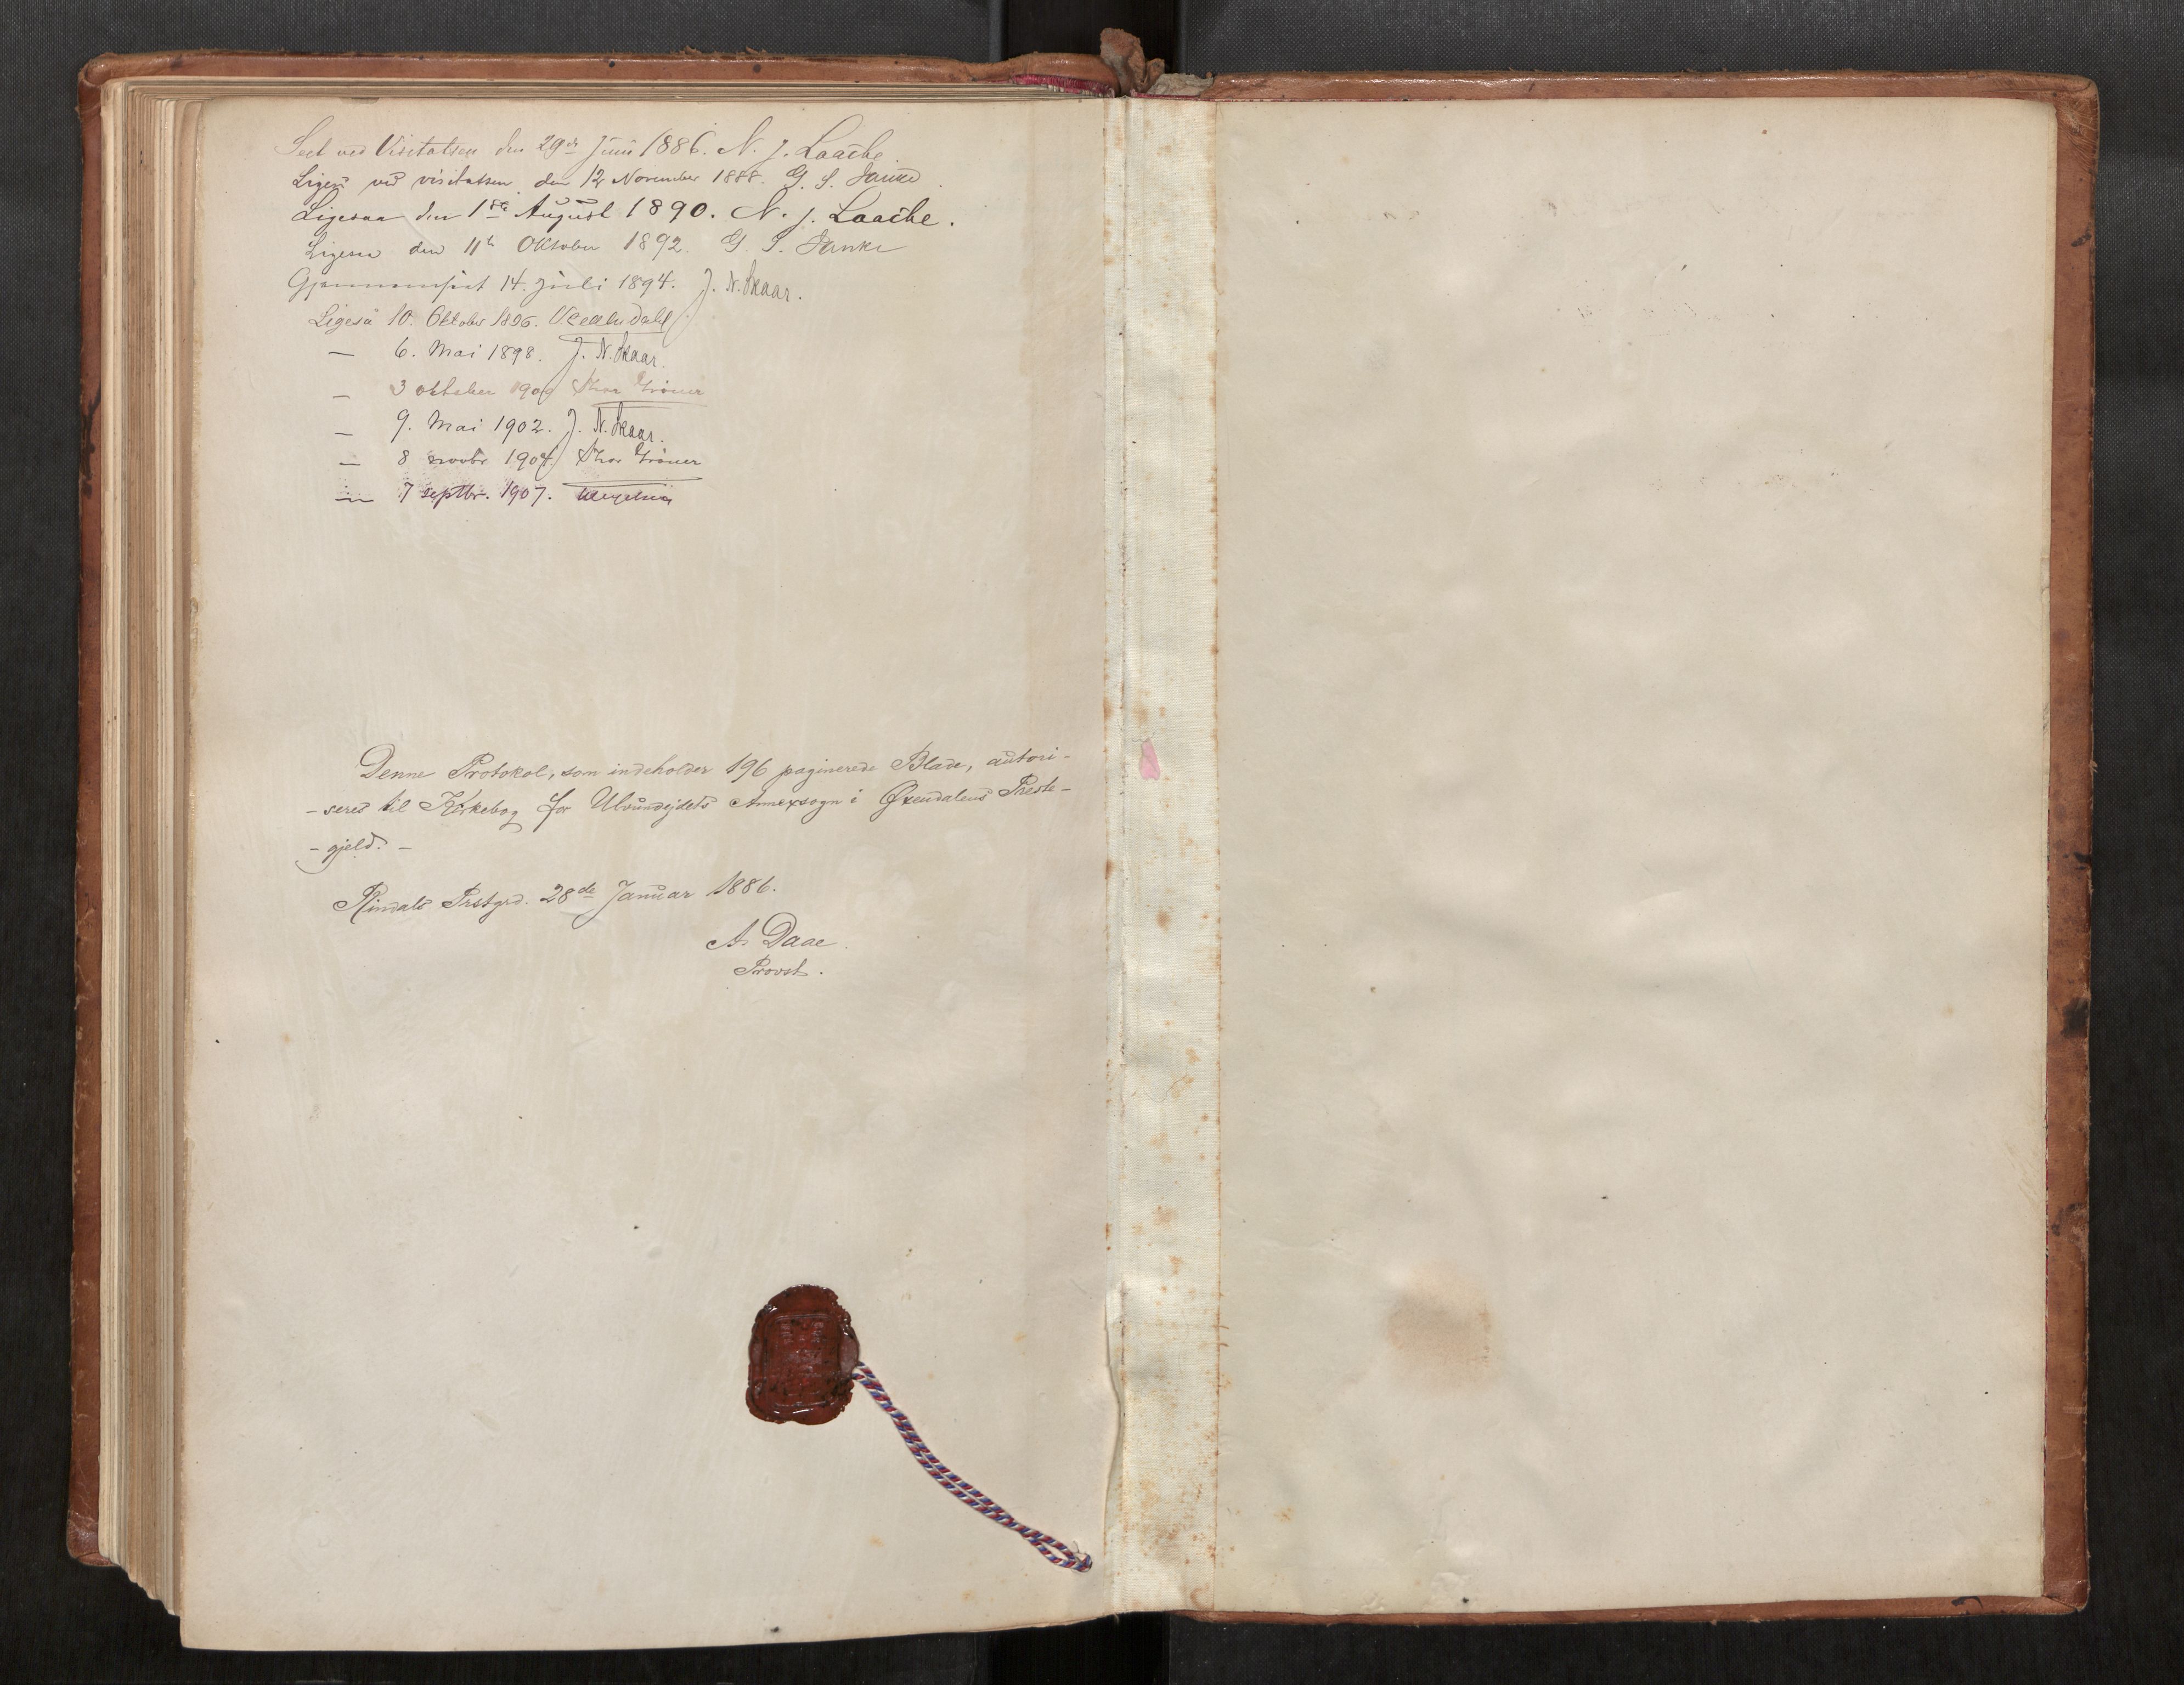 Seet ved Visitatsen den 29de Juni 1886. N. J. Laache.
Ligeså ved visitatsen den 12 November 1888. G. S.
Ligesaa den 1ste August 1890. N. J. Laache.
Ligesaa den 11te Oktober 1892. G S.
Gjennemseet 14. Juli 1894. J. N. Skaar.
Ligeså 10. Oktober 1896.
— 6. Mai 1898. J. N. Skaar.
— 3 oktober 1900
— 9. Mai 1902. J. N. Skaar.
— 8 novbr 1904
— 7 septbr. 1907.
Denne Protokol, som indeholder 196 paginerede Blade, autori-
- seres til Kirkebog for Ulvundejdets Annexsogn i Øxendalens Præste-
- gjeld. —
Rindals Prstgrd. 28de Januar 1886.
A. Daae.
Provst.